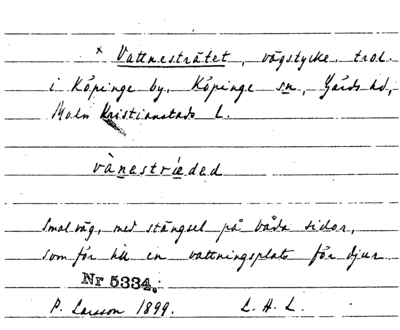 × Vattnesträtet, vägstycke, trol.
i Köpinge by, Köpinge sn, Gärds hd,
Kristianstads L.
vànestrı́eded
Smal väg, med stängsel på båda sidor,
som för till en vattningsplats för djur
Nr 5334.
P. Larsson 1899. L. H. L.